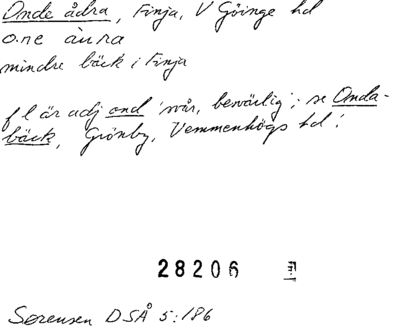 Onde ådra, Finja, V Göinge hd
o.ne àura
mindre bäck i Finja
fl är adj ond 'svår, besvärlig'; se Onda-
bäck, Grönby, Vemmenhögs hd!
28206
Sørensen DSÅ 5:186